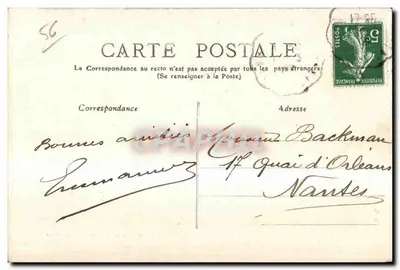 56
CARTE POSTALE
La Correspondance au recto n'est pas acceptée par tous les pays étrangers
(Se renseigner à la Poste)
Correspondance
Adresse
Bonnes amitiés
Emmanuel
Backman
17 Quai d'Orléans
Nantes
5c
POSTES
REPUBLIQUE FRANÇAISE